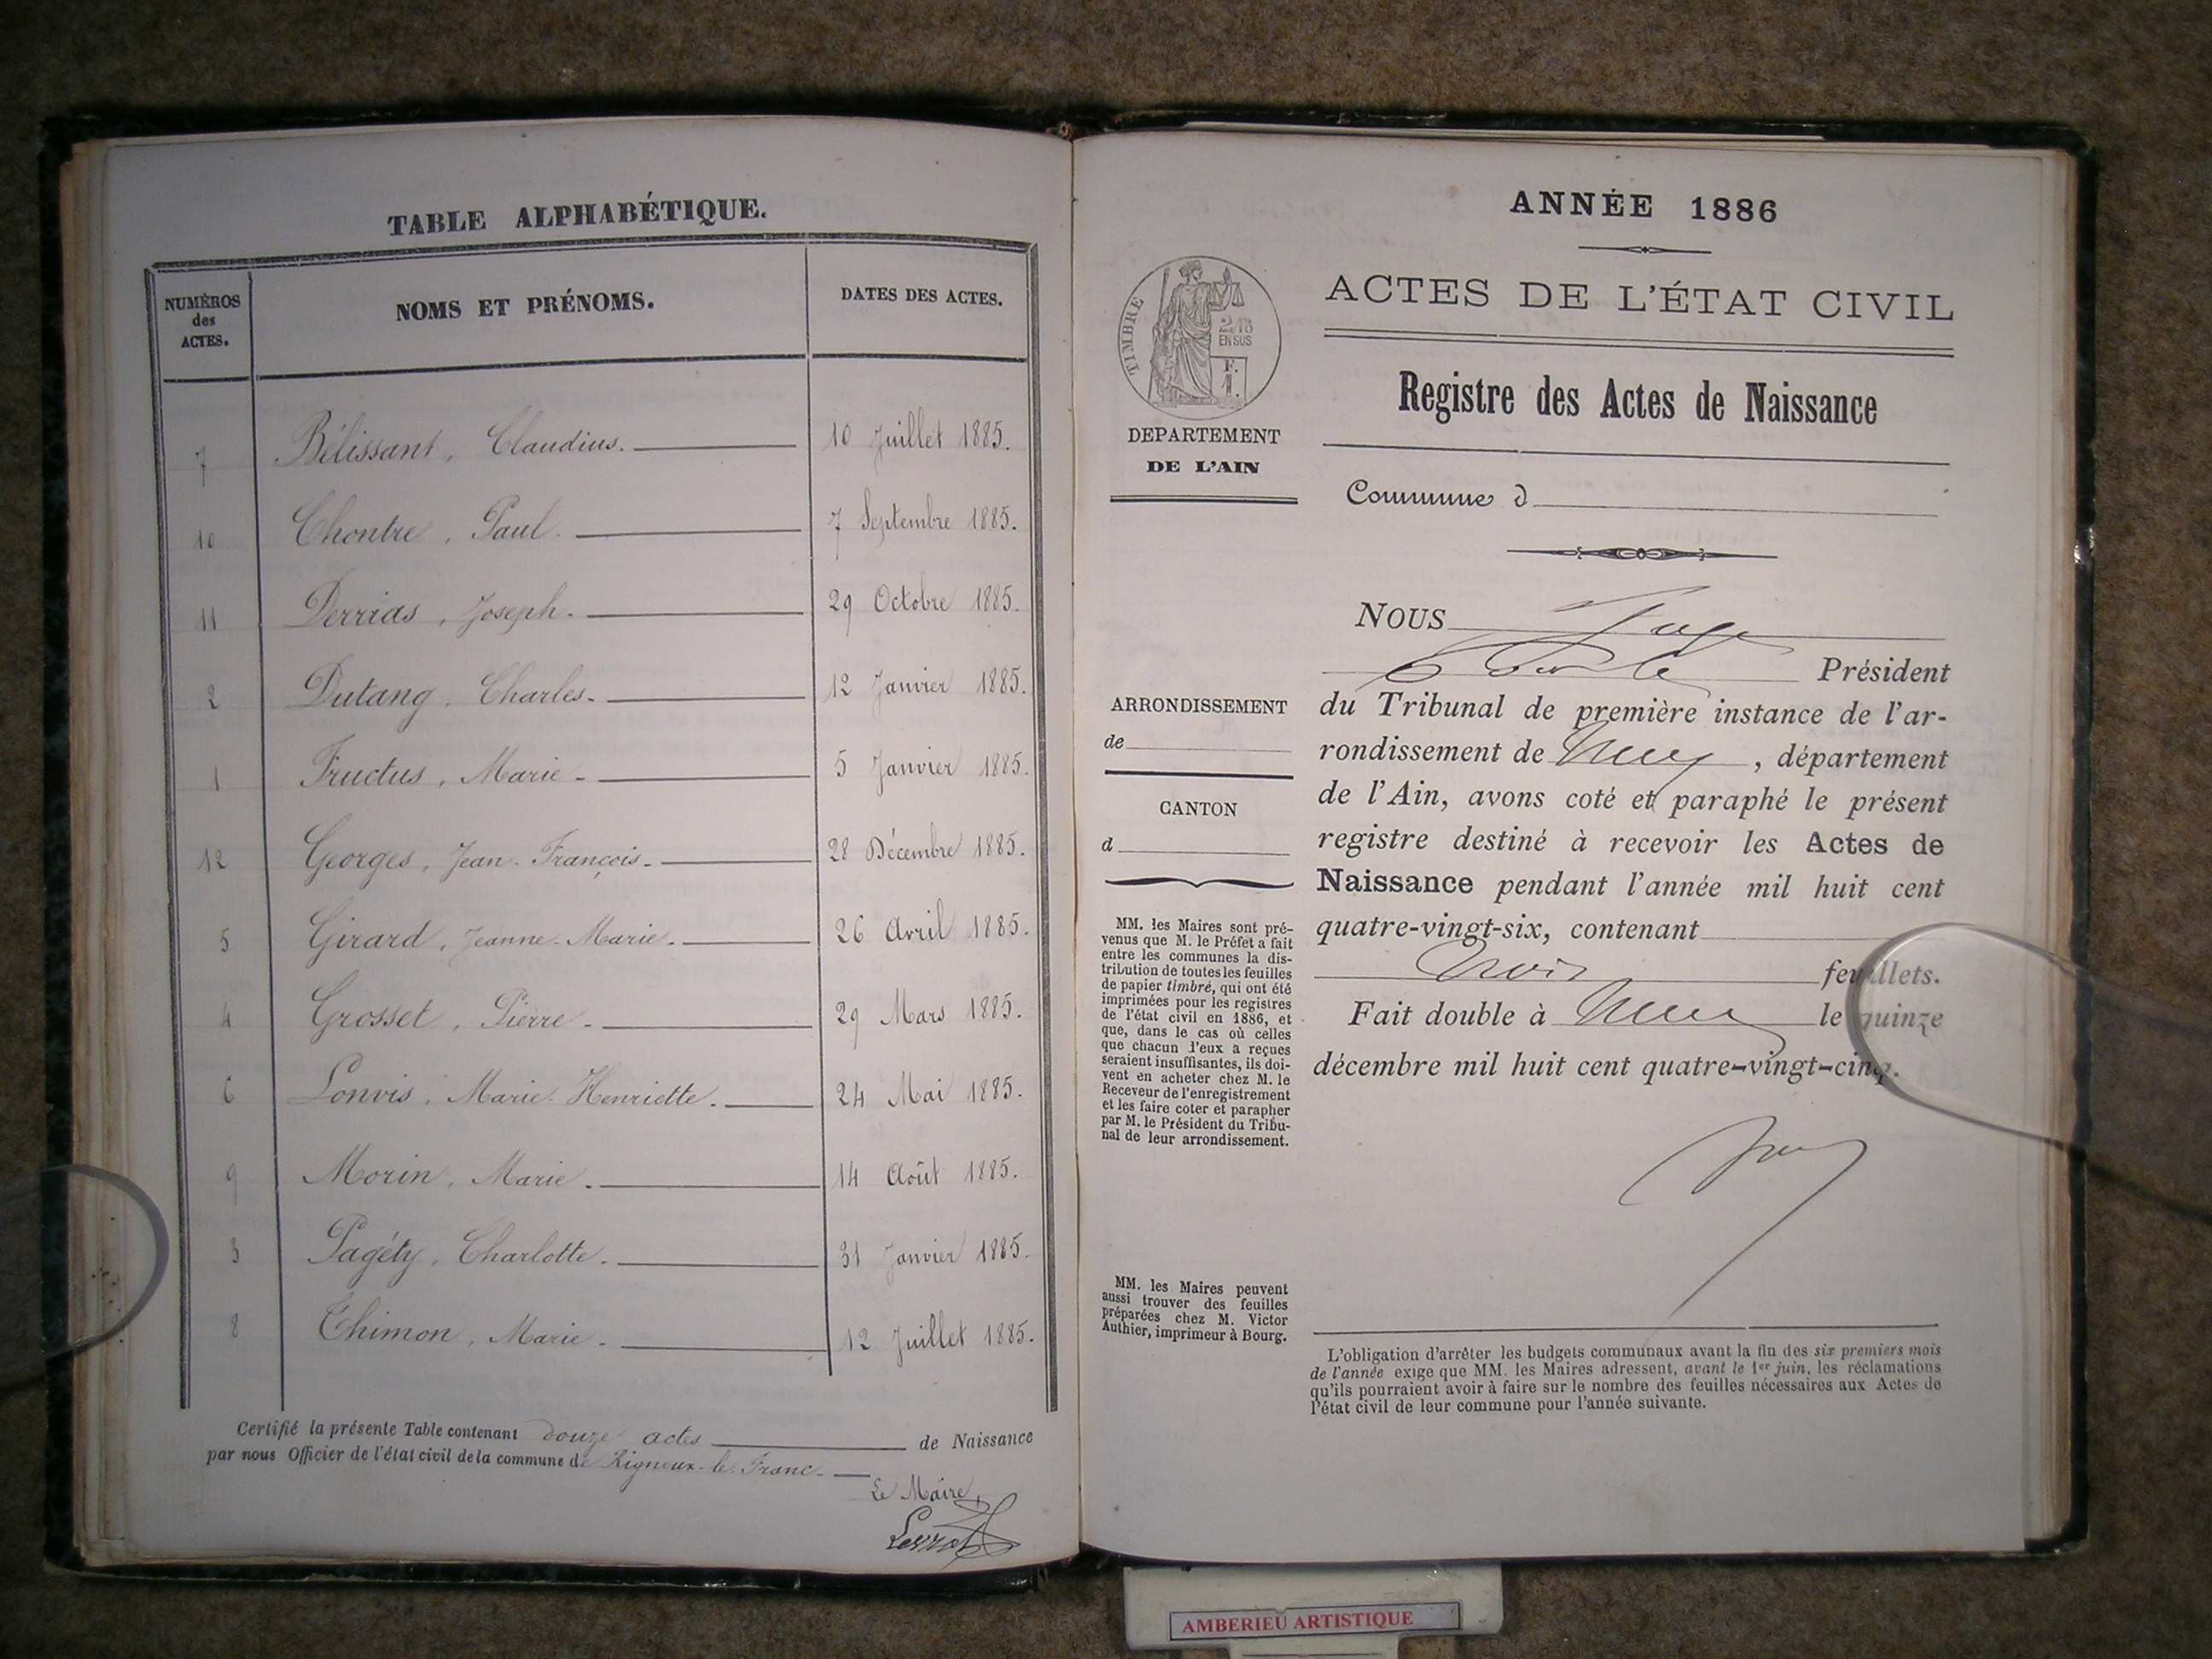 TABLE ALPHABÉTIQUE.
NUMÉROS des ACTES. NOMS ET PRÉNOMS. DATES DES ACTES.
7 Bélissant, Claudius. 10 Juillet 1885.
10 Chontre, Paul. 7 Septembre 1885.
11 Derrias, Joseph. 29 Octobre 1885.
2 Dutang, Charles. 12 Janvier 1885.
1 Fructus, Marie. 5 Janvier 1885.
12 Georges, Jean-François. 28 Décembre 1885.
5 Girard, Jeanne-Marie. 26 Avril 1885.
4 Grosset, Pierre. 29 Mars 1885.
6 Lonvis, Marie-Henriette. 24 Mai 1885.
9 Morin, Marie. 14 Août 1885.
3 Pagéty, Charlotte. 31 Janvier 1885.
8 Thimon, Marie. 12 Juillet 1885.
Certifié la présente Table contenant douze actes de Naissance
par nous Officier de l'état civil de la commune de Rigneux-le-Franc-
Le Maire,
ANNÉE 1886
TIMBRE
2/10
EN SUS
F.
1.
DEPARTEMENT
DE L'AIN
ACTES DE L'ÉTAT CIVIL
Registre des Actes de Naissance
Commune d
ARRONDISSEMENT
de
CANTON
d
MM. les Maires sont pré-
venus que M. le Préfet a fait
entre les communes la dis-
tribution de toutes les feuilles
de papier timbré, qui ont été
imprimées pour les registres
de l'état civil en 1886, et
que, dans le cas où celles
que chacun d'eux a reçues
seraient insuffisantes, ils doi-
vent en acheter chez M. le
Receveur de l'enregistrement
et les faire coter et parapher
par M. le Président du Tribu-
nal de leur arrondissement.
MM. les Maires peuvent
aussi trouver des feuilles
préparées chez M. Victor
Authier, imprimeur à Bourg.
NOUS Juge
Président
du Tribunal de première instance de l'ar-
rondissement de , département
de l'Ain, avons coté et paraphé le présent
registre destiné à recevoir les Actes de
Naissance pendant l'année mil huit cent
quatre-vingt-six, contenant
trois feuillets.
Fait double à le quinze
décembre mil huit cent quatre-vingt-cinq.
L'obligation d'arrêter les budgets communaux avant la fin des six premiers mois
de l'année exige que MM. les Maires adressent, avant le 1er juin, les réclamations
qu'ils pourraient avoir à faire sur le nombre des feuilles nécessaires aux Actes de
l'état civil de leur commune pour l'année suivante.
AMBERIEU ARTISTIQUE